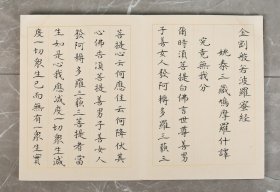 金剛般若波羅蜜經
姚秦三藏鳩摩羅什譯
究竟無我分
爾時須菩提白佛言世尊善男
子善女人發阿耨多羅三藐三
菩提心云何應住云何降伏其
心佛告須菩提善男子善女人
發阿耨多羅三藐三菩提者當
生如是心我應滅度一切眾生滅
度一切眾生已而無有一眾生實